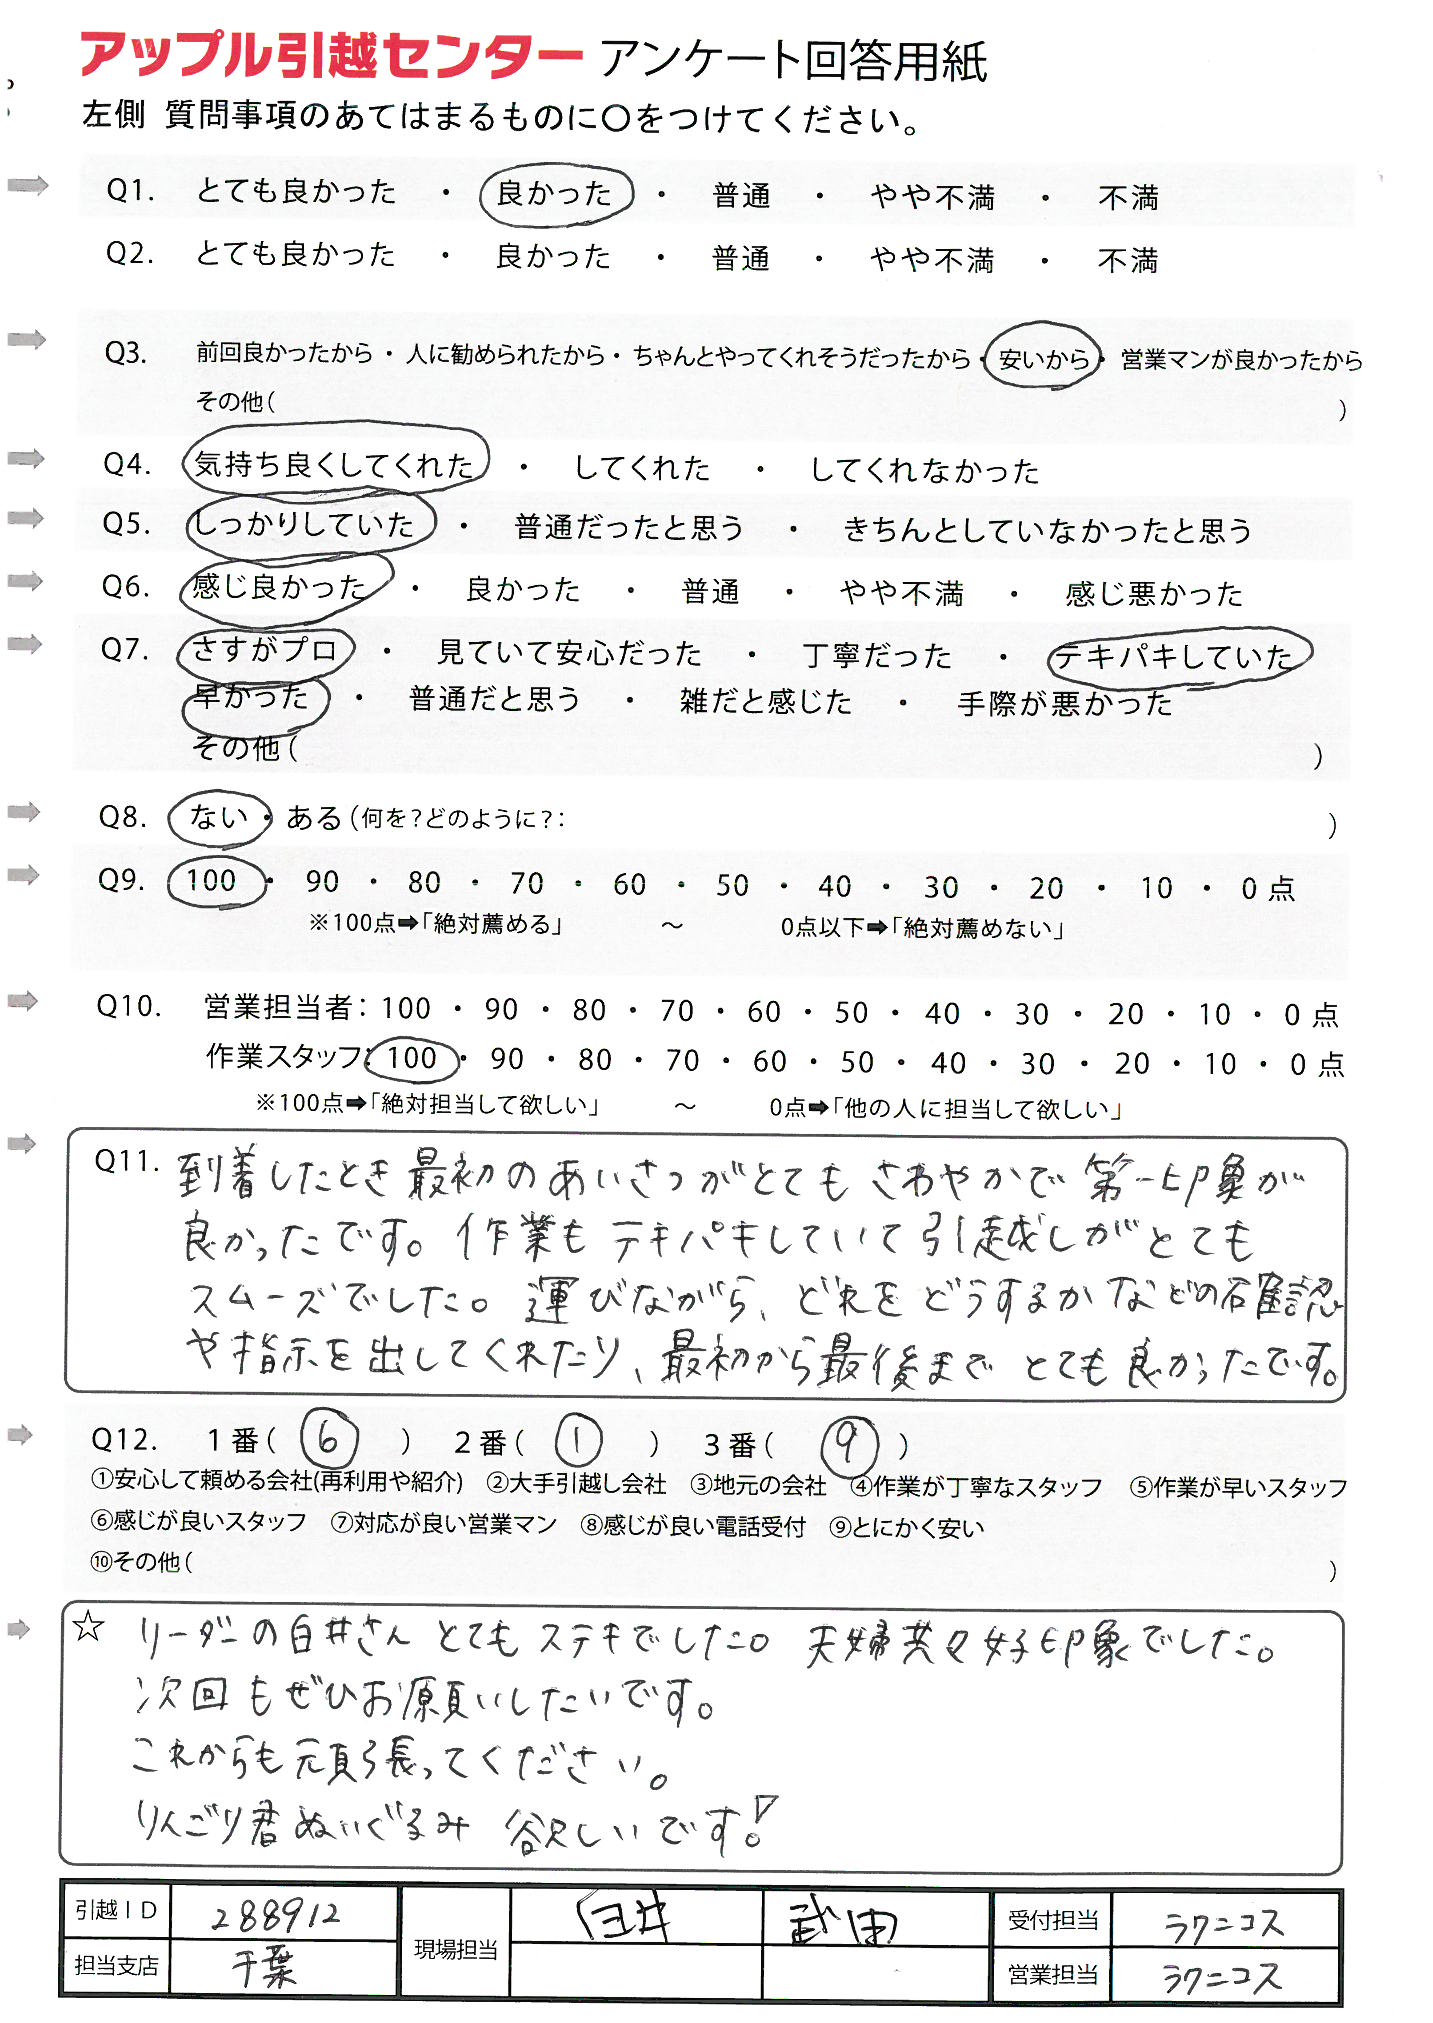 アップル引越センター アンケート回答用紙
左側 質問事項のあてはまるものに〇をつけてください。
Q1. とても良かった ・ 良かった ・ 普通 ・ やや不満 ・ 不満
Q2. とても良かった ・ 良かった ・ 普通 ・ やや不満 ・ 不満
Q3. 前回良かったから・人に勧められたから・ちゃんとやってくれそうだったから・安いから・営業マンが良かったから
その他( )
Q4. 気持ち良くしてくれた ・ してくれた ・ してくれなかった
Q5. しっかりしていた ・ 普通だったと思う ・ きちんとしていなかったと思う
Q6. 感じ良かった ・ 良かった ・ 普通 ・ やや不満 ・ 感じ悪かった
Q7. さすがプロ ・ 見ていて安心だった ・ 丁寧だった ・ テキパキしていた
早かった ・ 普通だと思う ・ 雑だと感じた ・ 手際が悪かった
その他( )
Q8. ない・ある(何を?どのように?: )
Q9. 100・90・80・70・60・50・40・30・20・10・0点
※100点➡「絶対薦める」 ~ 0点以下➡「絶対薦めない」
Q10. 営業担当者:100・90・80・70・60・50・40・30・20・10・0点
作業スタッフ:100・90・80・70・60・50・40・30・20・10・0点
※100点➡「絶対担当して欲しい」 ~ 0点➡「他の人に担当して欲しい」
Q11. 到着したとき最初のあいさつがとてもさわやかで第一印象が
良かったです。作業もテキパキしていて引越しがとても
スムーズでした。運びながら、どれをどうするかなどの確認
や指示を出してくれたり、最初から最後までとても良かったです。
Q12. 1番( 6 ) 2番( 1 ) 3番( 9 )
①安心して頼める会社(再利用や紹介) ②大手引越し会社 ③地元の会社 ④作業が丁寧なスタッフ ⑤作業が早いスタッフ
⑥感じが良いスタッフ ⑦対応が良い営業マン ⑧感じが良い電話受付 ⑨とにかく安い
⑩その他( )
☆ リーダーの白井さんとてもステキでした。夫婦共々好印象でした。
次回もぜひお願いしたいです。
これからも頑張ってください。
りんごり君ぬいぐるみ 欲しいです!
引越ID 288912 現場担当 白井 武田 受付担当 ラクニコス
担当支店 千葉 営業担当 ラクニコス